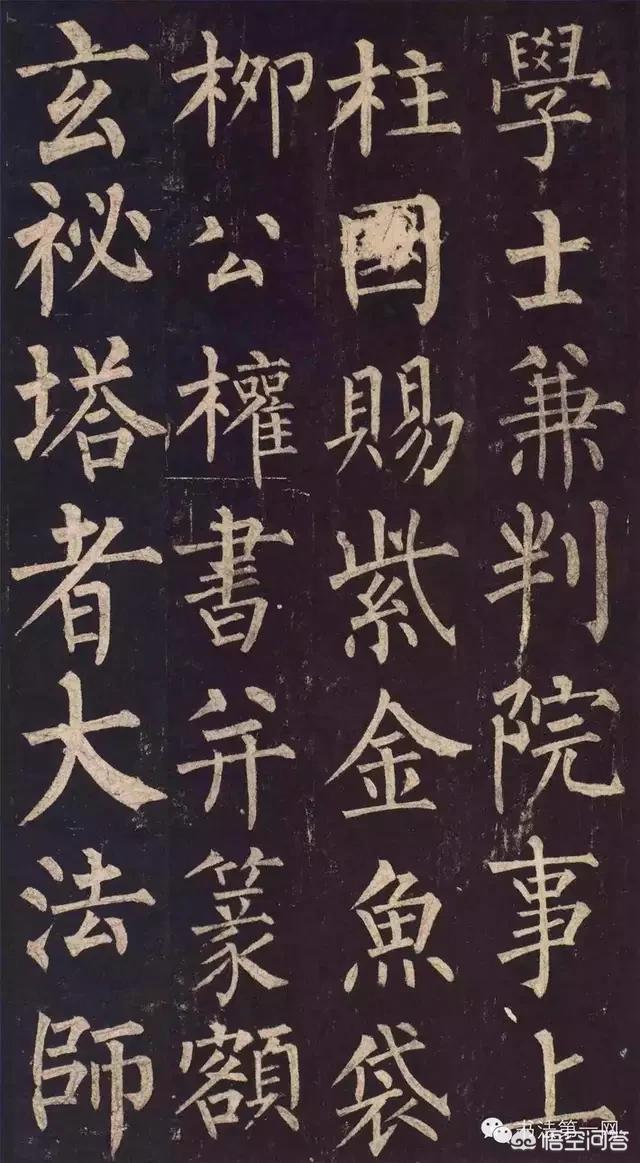 學士兼判院事上
柱國賜紫金魚袋
柳公權書并篆額
玄秘塔者大法師
书法第一网
悟空问答